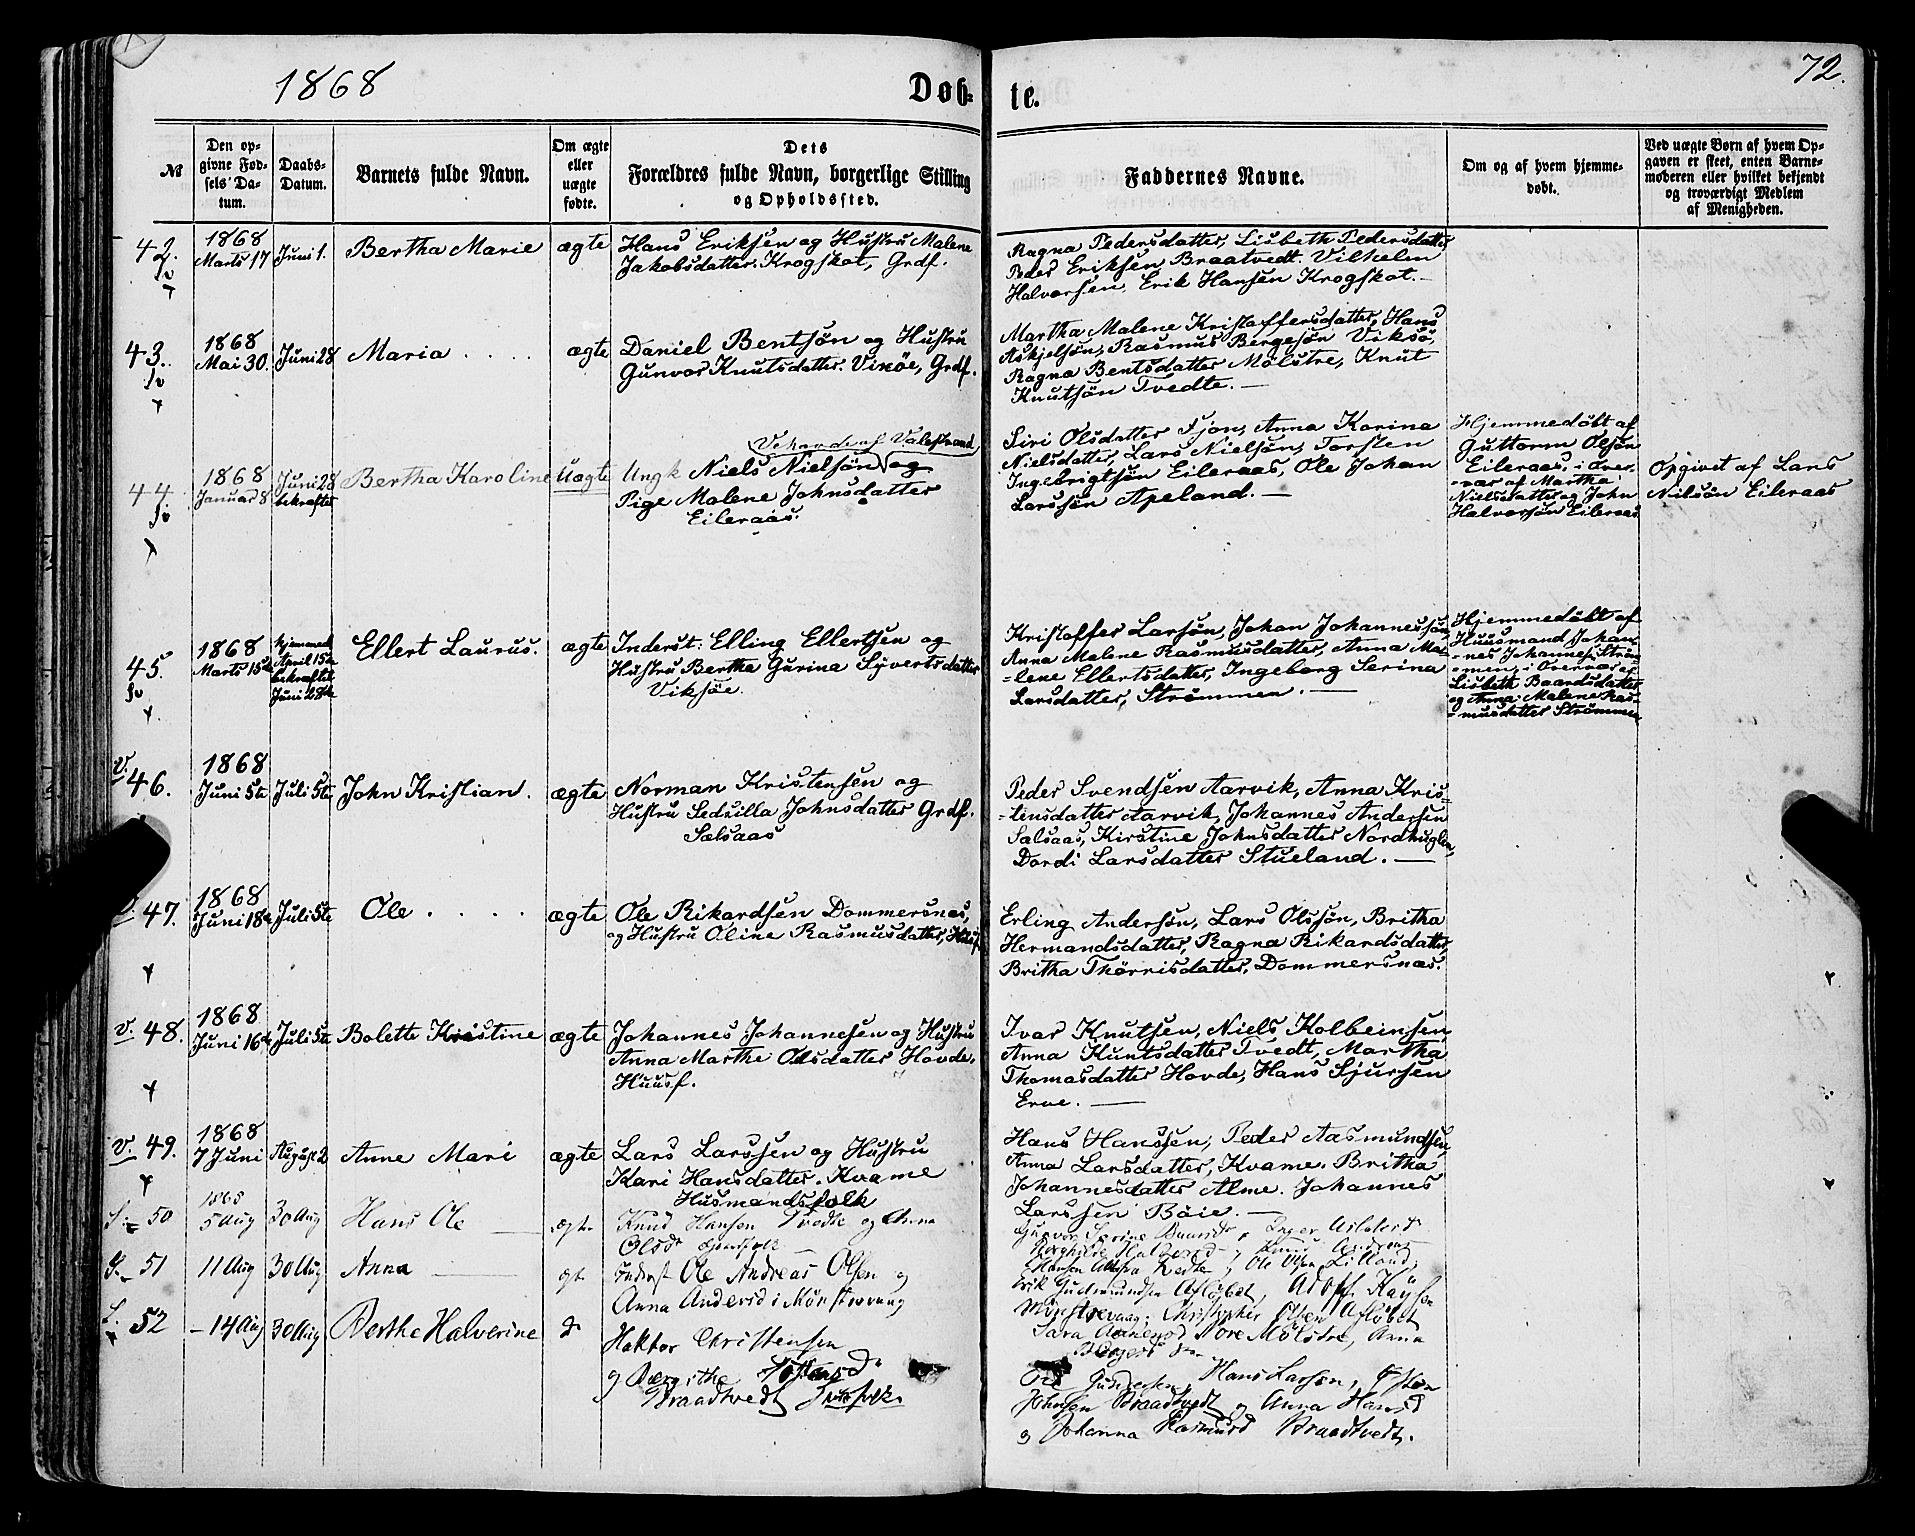 1868
Døb-
te.
72.
№
Den op-
givne Fød-
sels Da-
tum.
Daabs-
Datum.
Barnets fulde Navn.
Om ægte
eller
uægte
fødte.
Dets
Forældres fulde Navn, borgerlige Stilling
og Opholdssted.
Faddernes Navne.
Om og af hvem hjemme-
døbt.
Ved uægte Børn af hvem Op-
gaven er skeet, enten Barne-
moderen eller hvilket bekjendt
og troværdigt Medlem
af Menigheden.
42.
1868
Marts 17
Juni 1.
Bertha Marie
ægte
Hans Eriksen og Hustru Malene
Jakobsdatter. Krogskot, Grdf.
Ragna Pedersdatter, Lisbeth Pedersdatter
Peder Eriksen Braatvedt. Vilhelm
Halvorsen, Erik Hansen Krogskot.
43.
1868
Mai 30.
Juni 28
Maria . . . .
ægte
Daniel Bentsøn og Hustru
Gunvor Knutsdatter. Vixøe, Grdf.
Martha Malene Kristoffersdatter, Hans
Askjelsøn, Rasmus Bergesøn Viksø,
Ragna Bentsdatter Mølstre, Knut
Knutsøn Tvedte.
44.
1868
Januar 8
Juni 28
bekræftet
Bertha Karoline
Uægte
Ungk Niels Nielsøn og
Pige Malene Johnsdatter
Eileraas.
Siri Olsdatter Fjon, Anna Karina
Nielsdatter, Lars Nielsøn, Torsten
Ingebrigtsøn Eileraas, Ole Johan
Larssøn Apeland.
Hjemmedøbt af
Guttorm Olsøn
Eileraas, i Over-
-vær af Martha
Nielsdatter og John
Halvorsøn Eileraas
Opgivet af Lars
Nilsøn Eileraas
45.
1868
Marts 15de
hjemmed.
April 15de
bekræftet
Juni 28de
Ellert Laurus.
ægte
Inderst: Elling Ellertsen og
Hustru Berthe Gurina Syvertsdatter
Viksøe.
Kristoffer Larsøn, Johan Johannessøn,
Anna Malene Rasmusdatter, Anna Ma-
-lene Ellertsdatter, Ingeborg Serina
Larsdatter, Strømmen.
Hjemmedøbt af
Huusmand Johan-
-nes Johannes. Strøm-
-men, i Overvær af
Lisbeth Baardsdatter
og Anna Malene Ras-
-musdatter Strømmen
v. 46.
1868
Juni 5te
Juli 5te
John Kristian.
ægte
Norman Kristensøn og
Hustru Sedsilla Johnsdatter Grdf.
Sælsaas
Peder Svendsen Aarvik, Anna Kris-
-tensdatter Aarvik, Johannes Andersen
Sælsaas, Kirstine Johnsdatter Nordhuglen,
Dordi Larsdatter Stueland.
47.
1868
Juni 18de
Juli 5te
Ole . . . .
ægte
Ole Rikardsen Dommersnæs,
og Hustru Oline Rasmusdatter, Huusf
Erling Andersøn, Lars Olssøn, Britha
Hermandsdatter, Ragna Rikardsdatter,
Britha Thørrisdatter, Dommersnæs.
v. 48.
1868
Juni 16de
Juli 5te
Bolette Kristine
ægte
Johannes Johannesen og Hustru
Anna Marthe Olsdatter Hovde.
Huusf.
Ivar Knutsen, Niels Kolbeinsen,
Anna Kuntsdatter Tvedt, Martha
Thomasdatter Hovde, Hans Sjursen
Erve.
v. 49.
1868
7 Juni
August 2
Anne Mari
ægte
Lars Larssen og Hustru
Kari Hansdatter. Kvame
Husmandsfolk
Hans Hanssen, Peder Aasmundsen,
Anna Larsdatter, Kvame. Britha
Johannesdatter Alme. Johannes
Larssen Bøie.
50
1868
5 Aug
30 Aug
Hans Ole
ægte
Knud Hansen Tvedte og Anna
Olsdr
51
11 Aug
30 Aug
Anna
Inderst Ole Andreas Olsen og
Anna Andersd i Mønstrevaag
Erik Gudmundsen
Mønstrevaag, Christopher Olsen
52
14 Aug
30 Aug
Berthe Halverine
Haktor Christensen
og Bergithe
Braadtvedt
Hans Larsen,
Johnsen Braadtvedt og Anna Hansd
og Johanna Rasmusd Braadtvedt.